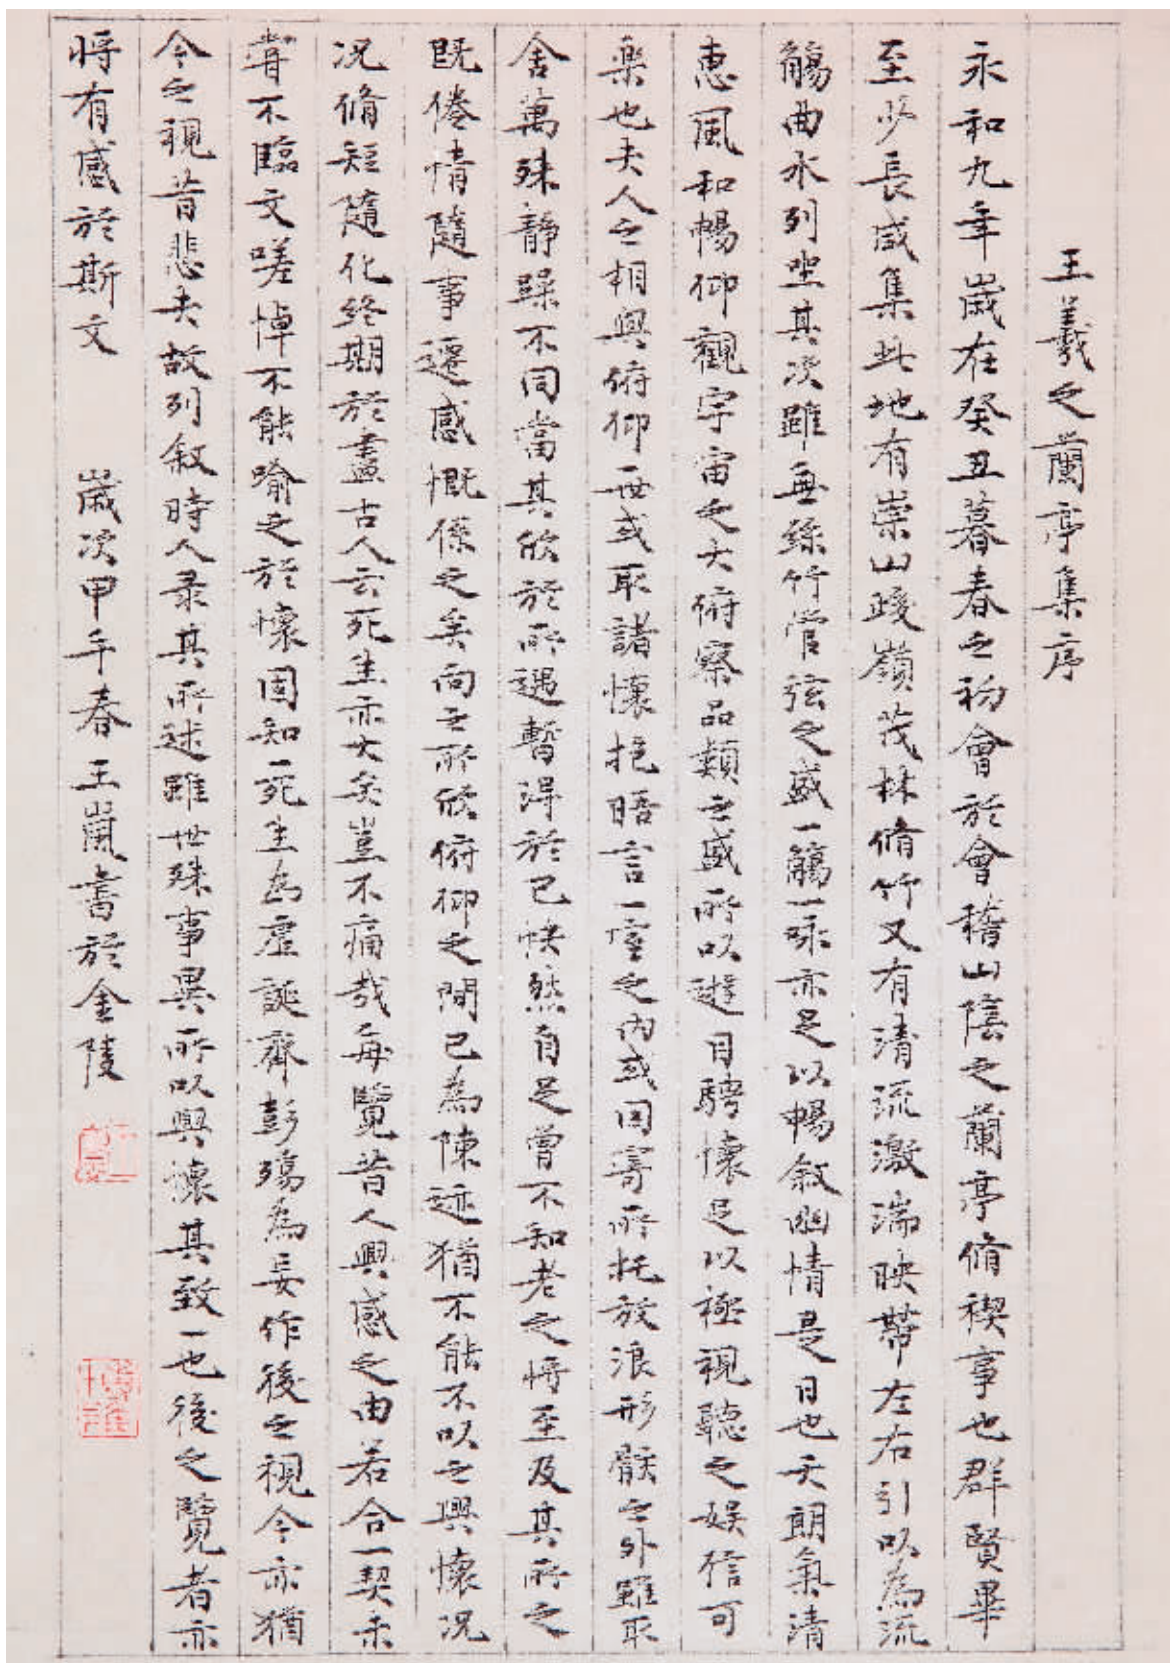 王羲之蘭亭集序
永和九年歲在癸丑暮春之初會於會稽山陰之蘭亭脩禊事也群賢畢
至少長咸集此地有崇山峻嶺茂林脩竹又有清流激湍映帶左右引以為流
觴曲水列坐其次雖無絲竹管弦之盛一觴一詠亦足以暢敘幽情是日也天朗氣清
惠風和暢仰觀宇宙之大俯察品類之盛所以遊目騁懷足以極視聽之娛信可
樂也夫人之相與俯仰世或取諸懷抱晤言一室之內或因寄所托放浪形骸之外雖取
舍萬殊靜躁不同當其欣於所遇暫得於己快然自足曾不知老之將至及其所之
既倦情隨事遷感慨係之矣向之所欣俯仰之間已為陳迹猶不能不以之興懷况
况脩短隨化終期於盡古人云死生亦大矣豈不痛哉每覽昔人興感之由若合一契未
嘗不臨文嗟悼不能喻之於懷固知一死生為虛誕齊彭殤為妄作後之視今亦猶
今之視昔悲夫故列敘時人录其所述雖世殊事異所以興懷其致一也後之覽者亦
將有感於斯文 歲次甲午春王嵐書於金陵